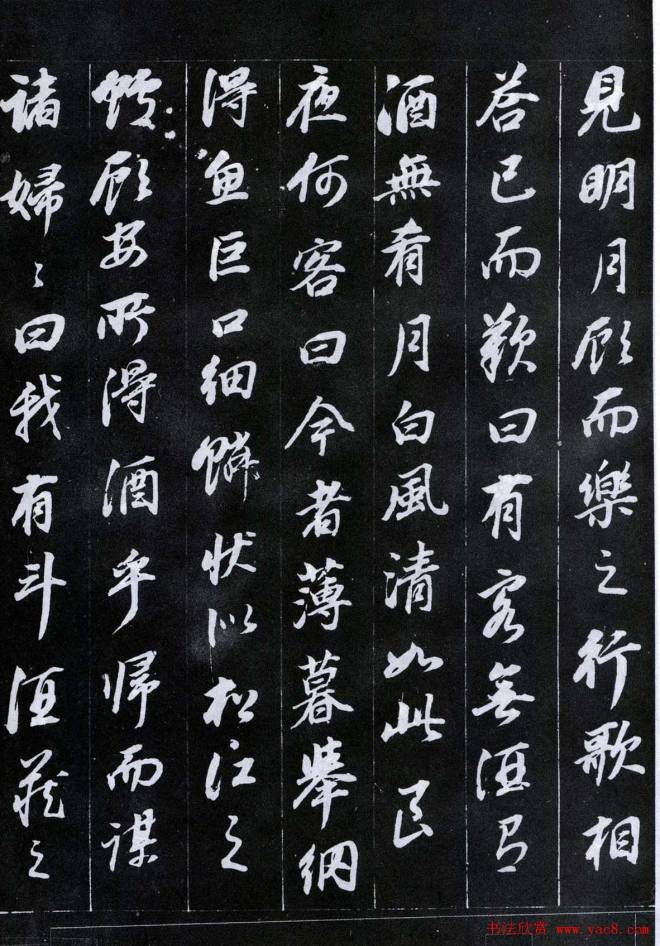 見明月顧而樂之行歌相
荅已而歎曰有客無酒有
酒無肴月白風清如此良
夜何客曰今者薄暮舉網
得魚巨口細鱗狀似松江之
鱸顧安所得酒乎歸而謀
諸婦〻曰我有斗酒藏之
书法欣赏 www.yac8.com